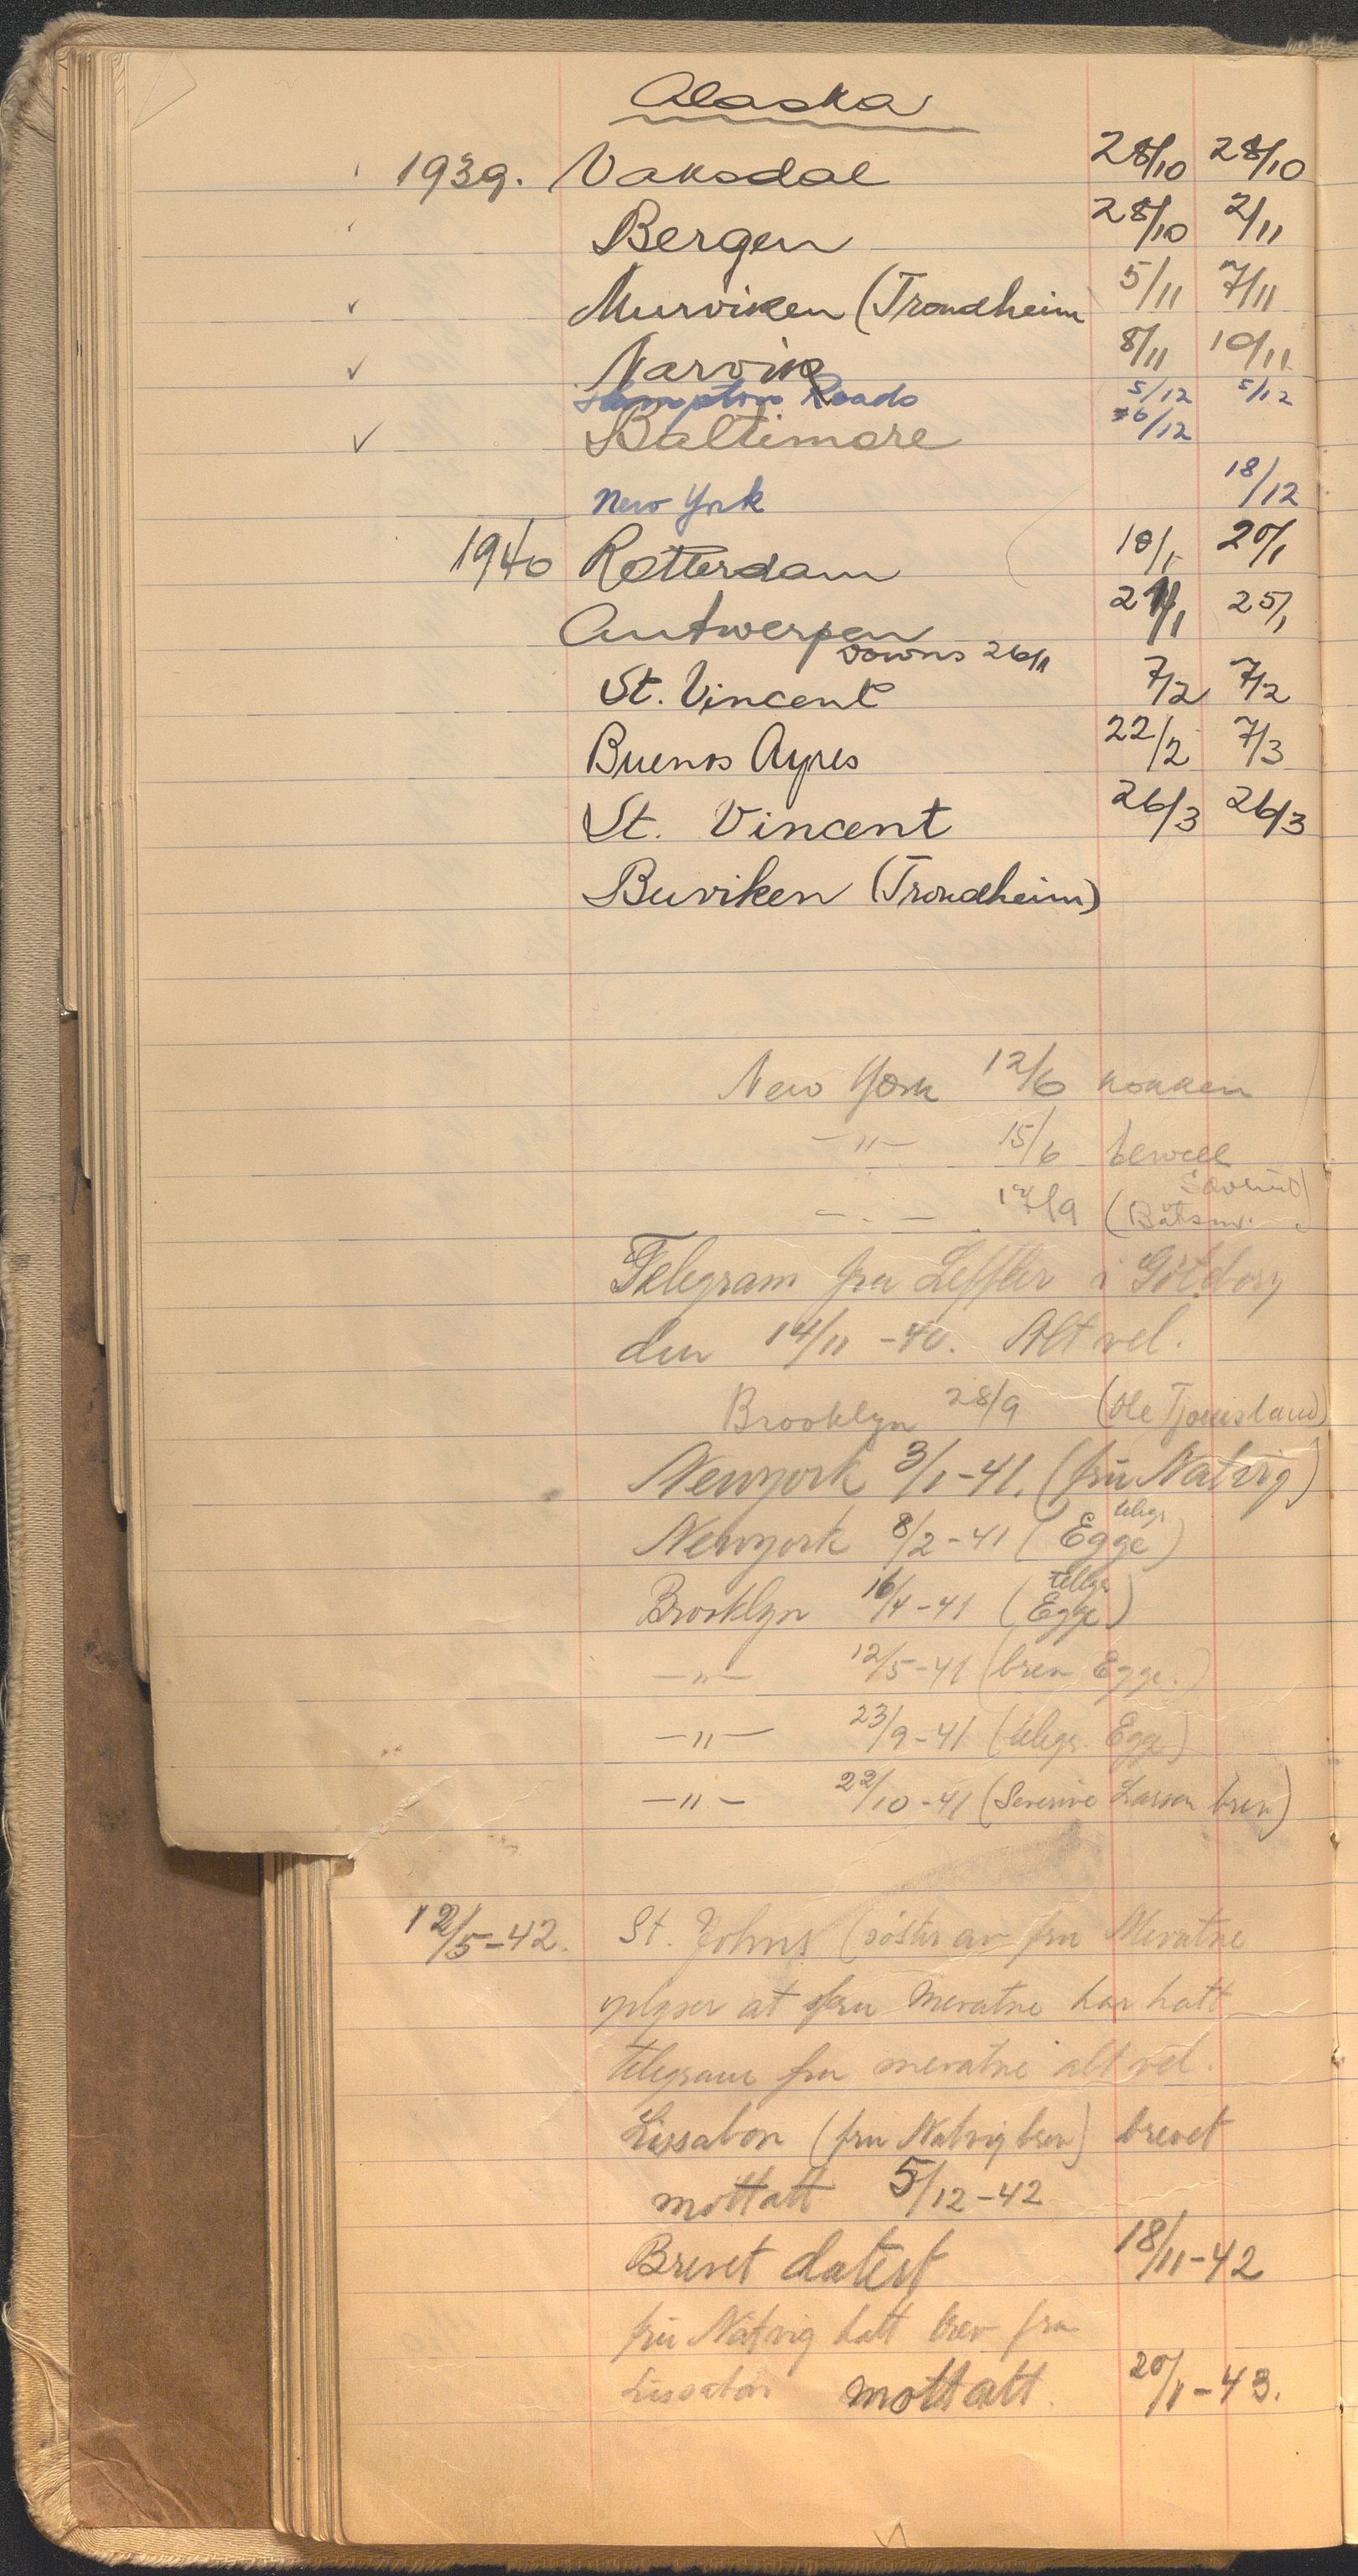 Alaska
1939. Vaksdal 28/10 28/10
Bergen 28/10 2/11
Murviken (Trondheim 5/11 7/11
Narvik 8/11 10/11
Hampton Roads 5/12 5/12
Baltimore 6/12
New York 18/12
1940 Rotterdam 10/1 20/1
Antwerpen 21/1 25/1
Downs 26/1
St. Vincent 7/2 7/2
Buenos Ayres 22/2 7/3
St. Vincent 26/3 26/3
Buviken (Trondheim)
New York 12/6 kokken
—"— 15/6
17/9 (Båtsm.
Telegram fra Leffler i Göteborg
den 14/11 -40. Alt vel.
Brooklyn 28/9 (Ole
Newyork 3/1-41. (fru Natvig)
telegr
Newyork 8/2-41 (Egge)
Brooklyn 16/4-41 (Egge)
—"— 12/5-41 (brev Egge.)
—"— 23/9-41 (telegr. Egge)
—"— 22/10-41 (Severine Larsen brev)
12/5-42. St. Johns (søster av fru Mevatne
oplyser at fru Mevatne har hatt
telegram fra mevatne alt vel.
Lissabon (fru Natvig brev) brevet
mottatt 5/12-42
Brevet datert 18/11-42
fru Natvig hatt brev fra
Lissabon mottatt. 20/1-43.